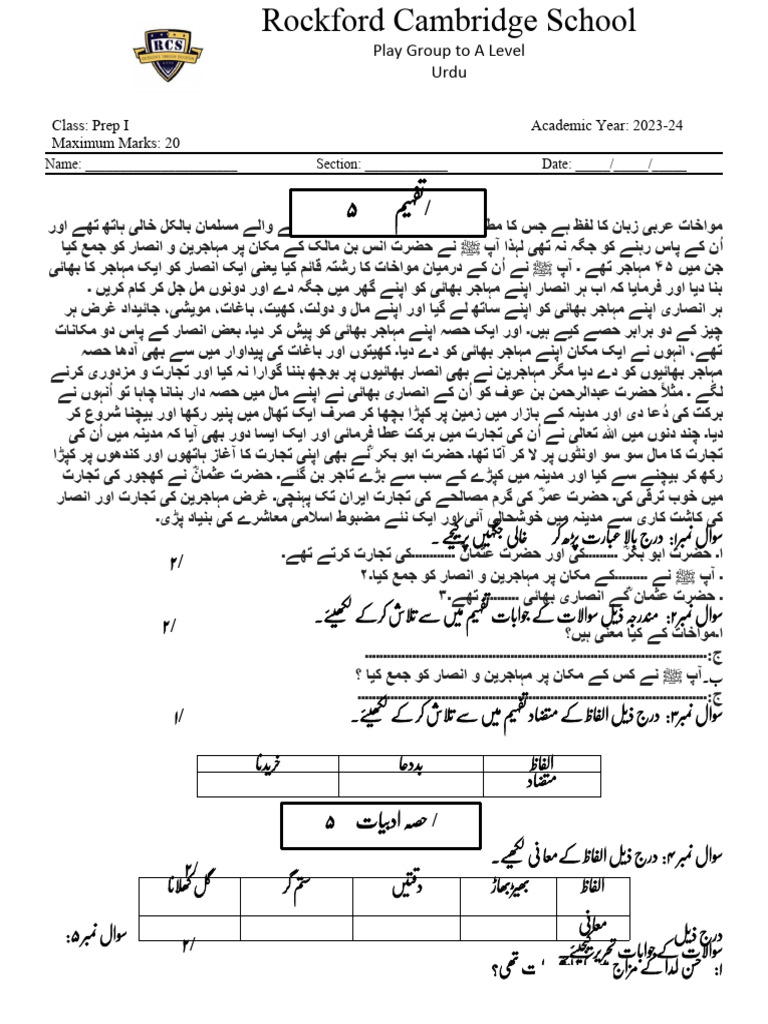 Rockford Cambridge School
RCS
Play Group to A Level
Urdu
Class: Prep I Academic Year: 2023-24
Maximum Marks: 20
Name: ______________________ Section: ____________ Date: _____/_____/_____
تفہیم /۵
مواخات عربی زبان کا لفظ ہے جس کا نے والے مسلمان بالکل خالی ہاتھ تھے اور
اُن کے پاس رہنے کو جگہ نہ تھی لہٰذا آپ ﷺ نے حضرت انس بن مالک کے مکان پر مہاجرین و انصار کو جمع کیا
جن میں ۴۵ مہاجر تھے ۔ آپ ﷺ نے ان کے درمیان مواخات کا رشتہ قائم کیا یعنی ایک انصار کو ایک مہاجر کا بھائی
بنا دیا اور فرمایا کہ اب ہر انصار اپنے مہاجر بھائی کو اپنے گھر میں جگہ دے اور دونوں مل جل کر کام کریں ۔
ہر انصاری اپنے مہاجر بھائی کو اپنے ساتھ لے گیا اور اپنے مال و دولت، کھیت، باغات، مویشی، جائیداد غرض ہر
چیز کے دو برابر حصے کیے ہیں۔ اور ایک حصہ اپنے مہاجر بھائی کو پیش کر دیا۔ بعض انصار کے پاس دو مکانات
تھے، انہوں نے ایک مکان اپنے مہاجر بھائی کو دے دیا۔ کھیتوں اور باغات کی پیداوار میں سے بھی آدھا حصہ
مہاجر بھائیوں کو دے دیا مگر مہاجرین نے بھی انصار بھائیوں پر بوجھ بننا گوارا نہ کیا اور تجارت و مزدوری کرنے
لگے ۔ مثلاً حضرت عبدالرحمن بن عوف کو اُن کے انصاری بھائی نے اپنے مال میں حصہ دار بنانا چاہا تو اُنہوں نے
برکت کی دُعا دی اور مدینہ کے بازار میں زمین پر کپڑا بچھا کر صرف ایک تھال میں پنیر رکھا اور بیچنا شروع کر
دیا۔ چند دنوں میں اللہ تعالی نے اُن کی تجارت میں برکت عطا فرمائی اور ایک ایسا دور بھی آیا کہ مدینہ میں اُن کی
تجارت کا مال سو سو اونٹوں پر لا کر آتا تھا۔ حضرت ابو بکرؓ نے بھی اپنی تجارت کا آغاز ہاتھوں اور کندھوں پر کپڑا
رکھ کر بیچنے سے کیا اور مدینہ میں کپڑے کے سب سے بڑے تاجر بن گئے۔ حضرت عثمانؓ نے کھجور کی تجارت
میں خوب ترقی کی۔ حضرت عمرؓ کی گرم مصالحے کی تجارت ایران تک پہنچی۔ غرض مہاجرین کی تجارت اور انصار
کی کاشت کاری سے مدینہ میں خوشحالی آئی اور ایک نئے مضبوط اسلامی معاشرے کی بنیاد پڑی۔
سوال نمبر۱: درج بالا عبارت پڑھ کر خالی جگہیں پر کیجیے ۔
/۲
۱۔ حضرت ابو بکرؓ .........کی اور حضرت عثمانؓ ............کی تجارت کرتے تھے۔
۲۔ آپ ﷺ نے .........کے مکان پر مہاجرین و انصار کو جمع کیا۔
۳۔ حضرت عثمانؓ کے انصاری بھائی ......... تھے۔
سوال نمبر۲: مندرجہ ذیل سوالات کے جوابات تفہیم میں سے تلاش کرکے لکھیئے۔
/۲
ا۔مواخات کے کیا معنی ہیں؟
ج:..........................................................................
ب۔آپ ﷺ نے کس کے مکان پر مہاجرین و انصار کو جمع کیا ؟
ج:..........................................................................
سوال نمبر۳: درج ذیل الفاظ کے متضاد تفہیم میں سے تلاش کرکے لکھیئے۔ /۱
الفاظ بددعا خریدنا
متضاد
حصہ ادبیات /۵
سوال نمبر۴: درج ذیل الفاظ کے معانی لکھیے۔
/۲
الفاظ بھیڑ بھاڑ دقتیں ستم گر گل کھلانا
معانی
سوال نمبر۵: درج ذیل
سوالات کے جوابات تحریر کیجیئے۔ /۲
ا: حسن لدا کے مزاج ت تھی؟